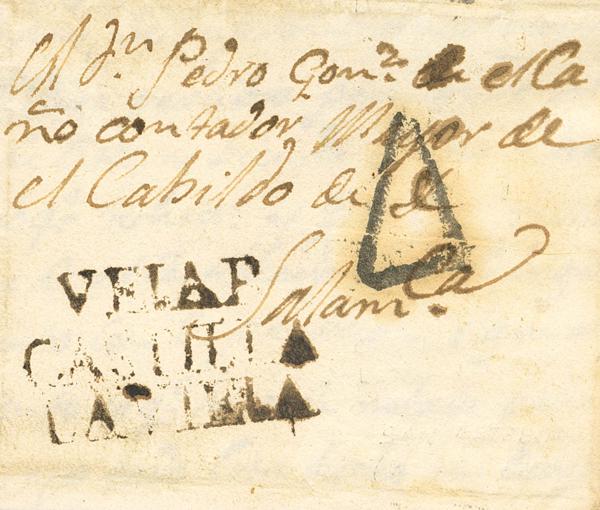 A Dn Pedro Gonz de el Ca
ño contador Mayor de
el Cabildo de
Salamca
VEJAR
CASTILLA
LA VIEJA